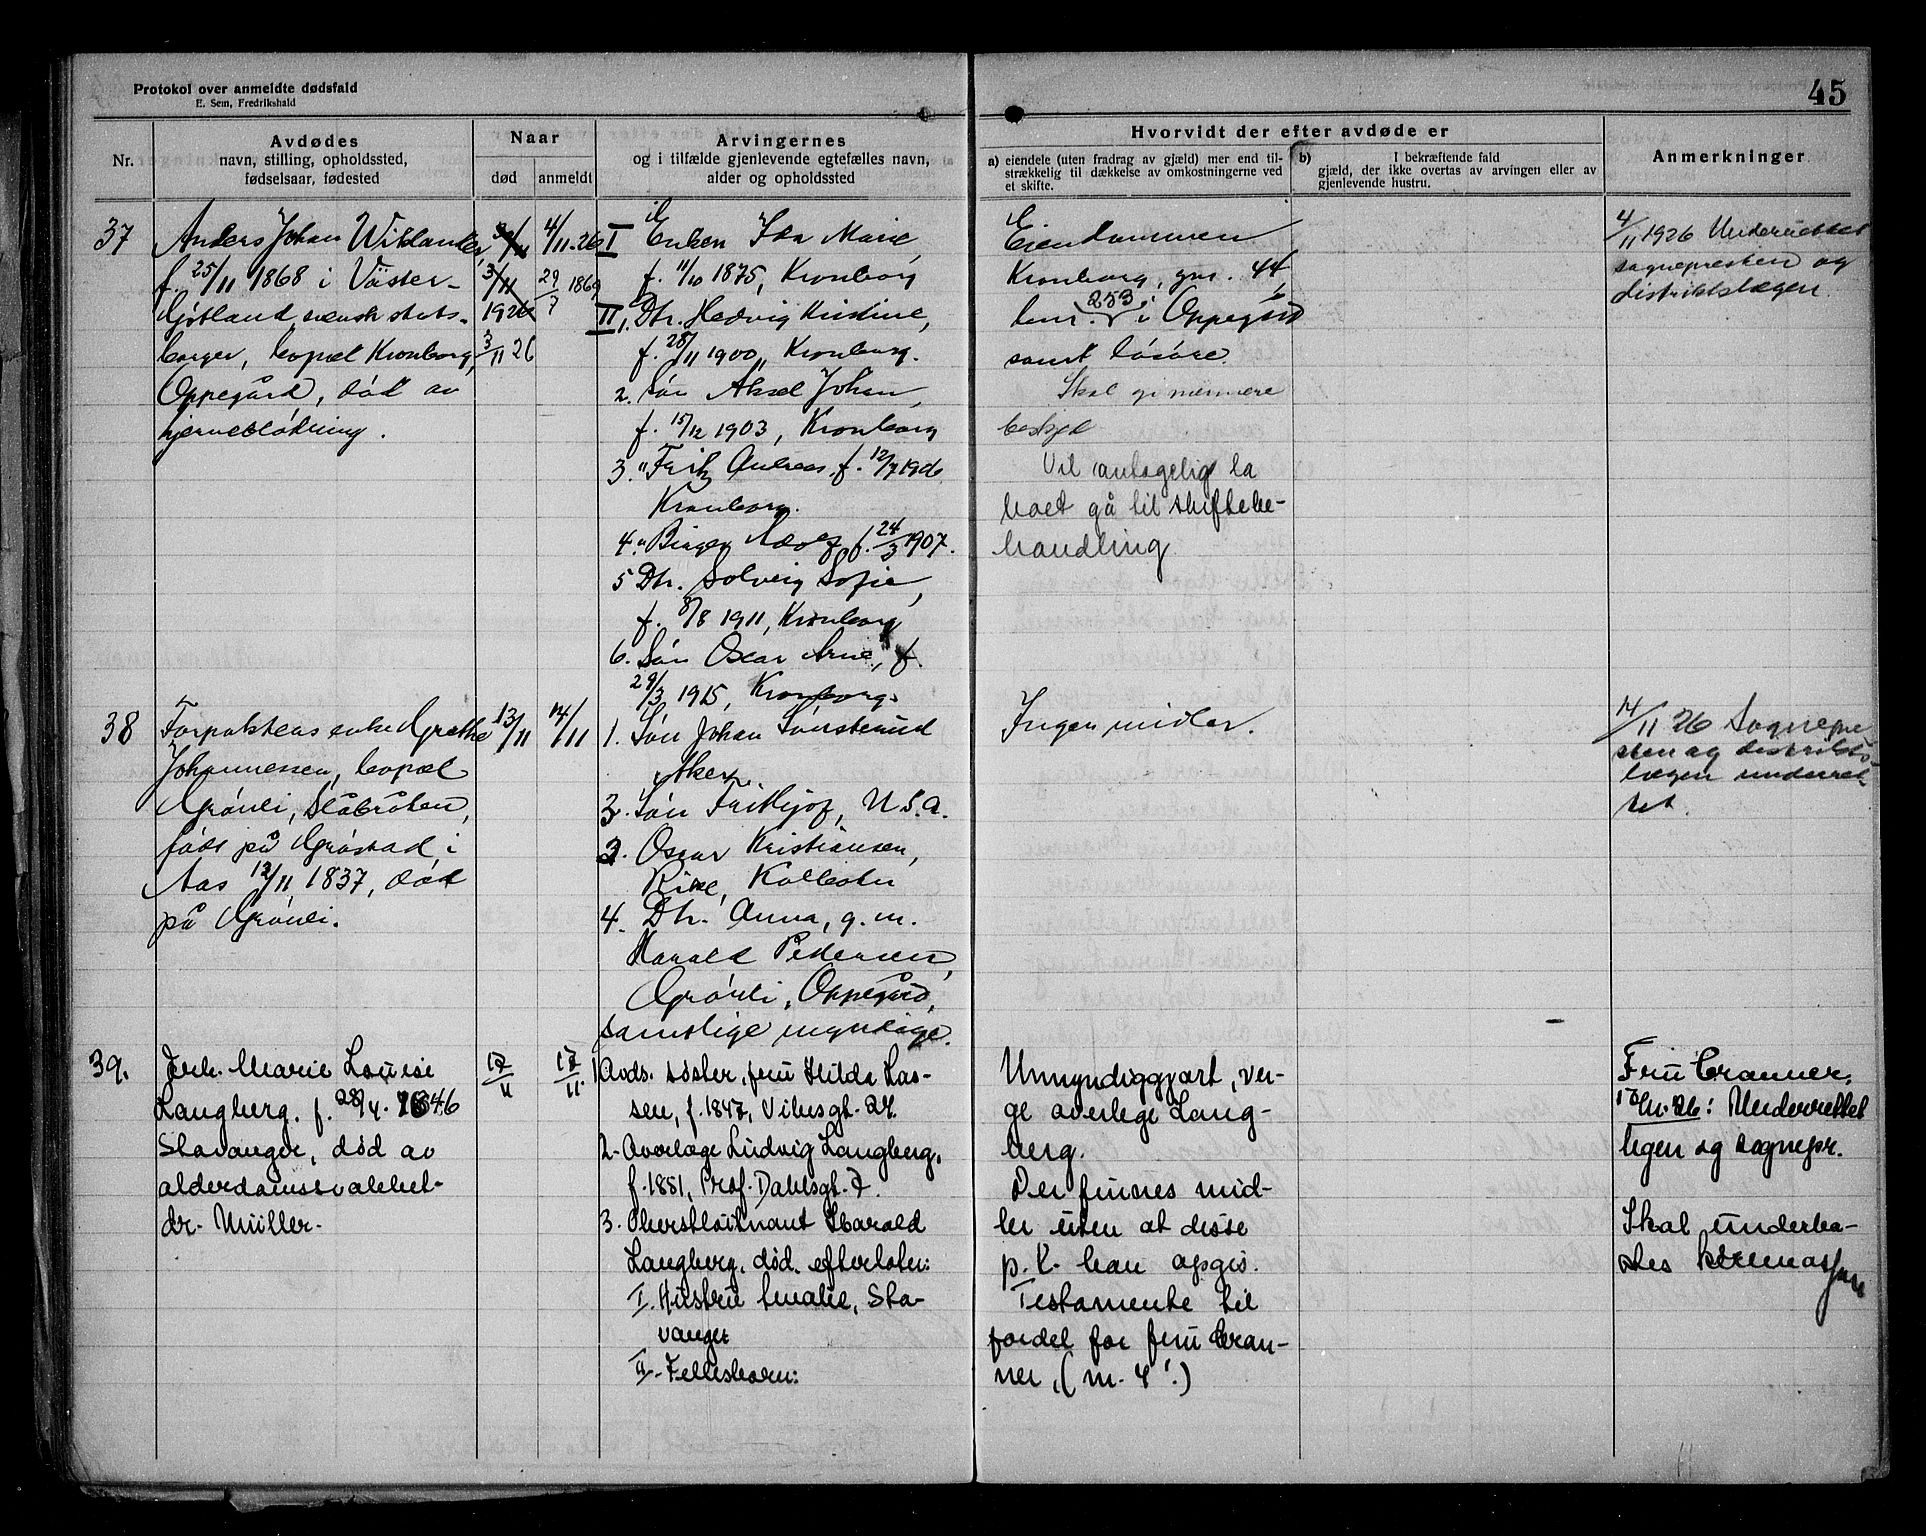 Protokol over anmeldte dødsfald
E. Sem, Fredrikshald
45
Nr.
Avdødes
navn, stilling, opholdssted,
fødselsaar, fødested
Naar
død
anmeldt
Arvingernes
og i tilfælde gjenlevende egtefælles navn,
alder og opholdssted
Hvorvidt der efter avdøde er
a) eiendele (uten fradrag av gjæld) mer end til-
strækkelig til dækkelse av omkostningerne ved
et skifte.
b) I bekræftende fald
gjæld, der ikke overtas av arvingen eller av
gjenlevende hustru.
Anmerkninger
37
Anders Johan Wiklander,
f. 25/11 1868 i Väster-
Götland svensk stats-
borger, bopæl Kronborg,
Oppegård, død av
hjerneblødning.
3/11
1926
3/11 26
4/11-26
29/7 1869
I Enken Ida Marie,
f. 11/10 1875, Kronborg
II 1. Dtr. Hedvig Kristine,
f. 28/11 1900, Kronborg.
2. Søn Aksel Johan,
f. 15/12 1903, Kronborg
3. " Fritz Andreas, f. 12/7 1906
Kronborg.
4. " Birger f. 24/3 1907.
5 Dtr. Solveig Sofie,
f. 8/8 1911, Kronborg
6. Søn Oscar Arne, f.
29/3 1915, Kronborg.
Eiendommen
Kronborg, gnr. 44
bnr. 253 i Oppegård
samt løsøre.
Skal gi nærmere
beskjed
Vil antagelig la
boet gå til skiftebe-
handling
4/11 1926 Underrettet
sognepresten og
distriktslægen.
38
Forpaktens enke Grethe
Johannessen, bopæl
Grönli, Slåbråten,
født på Gröstad i
Aas 12/11 1837, død
på Grönli.
13/11
14/11
1. Søn Johan Sönsterud
Aker.
2. Søn Frithjof, U.S.A.
3. Oscar Kristiansen,
Kolbotn
4. Dtr. Anna, g.m.
Harald Pedersen,
Grönli, Oppegård,
samtlige myndige.
Ingen midler.
14/11 26 Sognepre
sten og distrikts-
lægen underret
tet.
39.
Frk. Marie Louise
Langberg. f. 28/4. 1846
Stavanger, død av
alderdomssvakhet-
dr. Müller-
17/11
17/11.
1 Avds. søster, fru Hilda Las-
sen, f. 1847, Vibesgt. 24.
2- Overlæge Ludvig Langberg,
f. 1881, Prof. Dahlsgt. 7.
3. Oberstløitnant Harald
Langberg, død. efterlater:
I. Hustru Amalie, Sta-
vanger
II- Fellesbarn:
Umyndiggjort, ver-
ge overlege Lang-
berg.
Der finnes mid-
ler uten at disse
p.t. kan opgis.
Testamente til
fordel for fru Cran-
ner, (m. 4'.)
Fru Cranner.
17/11. 26: Underrettet
legen og sognepr.
Skal